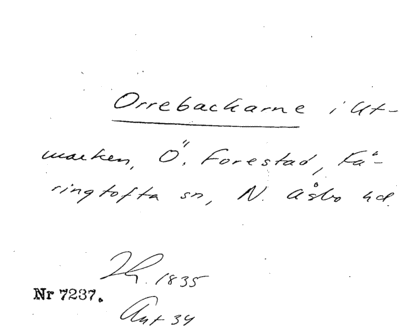 Orrebackarne i Ut-
marken, Ö. Forestad, Få-
ringtofta sn, N. Åsbo hd.
1835
Nr 7237.
Akt 34